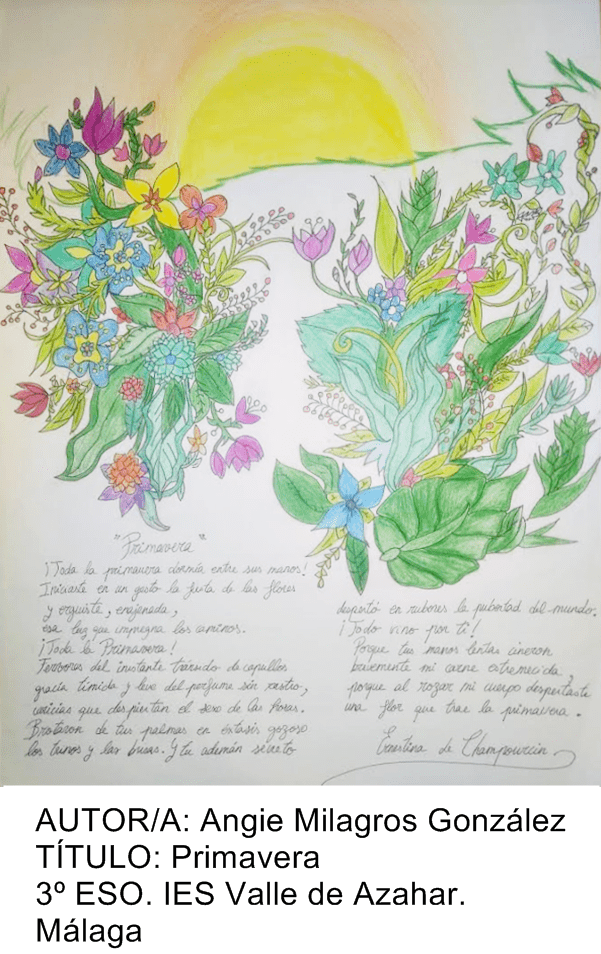 "Primavera"
¡Toda la primavera dormía entre sus manos!
Iniciaste en un gesto la fiesta de las flores
y erguiste, enajenada,
esa luz que impregna los caminos.
¡Toda la Primavera!
Temblores del instante desnudo de capullos
gracia tímida y leve del perfume sin rastro,
caricias que despiertan el sexo de las horas.
Brotaron de tus palmas en éxtasis gozoso
los y las brisas. Y tu ademán secreto
despertó en rubores la pubertad del mundo.
¡Todo vino por ti!
Porque tus manos lentas cineron
brevemente mi carne estremecida
porque al rozar mi cuerpo despertaste
una flor que trae la primavera.
Ernestina de Champourcin
AUTOR/A: Angie Milagros González
TÍTULO: Primavera
3º ESO. IES Valle de Azahar.
Málaga